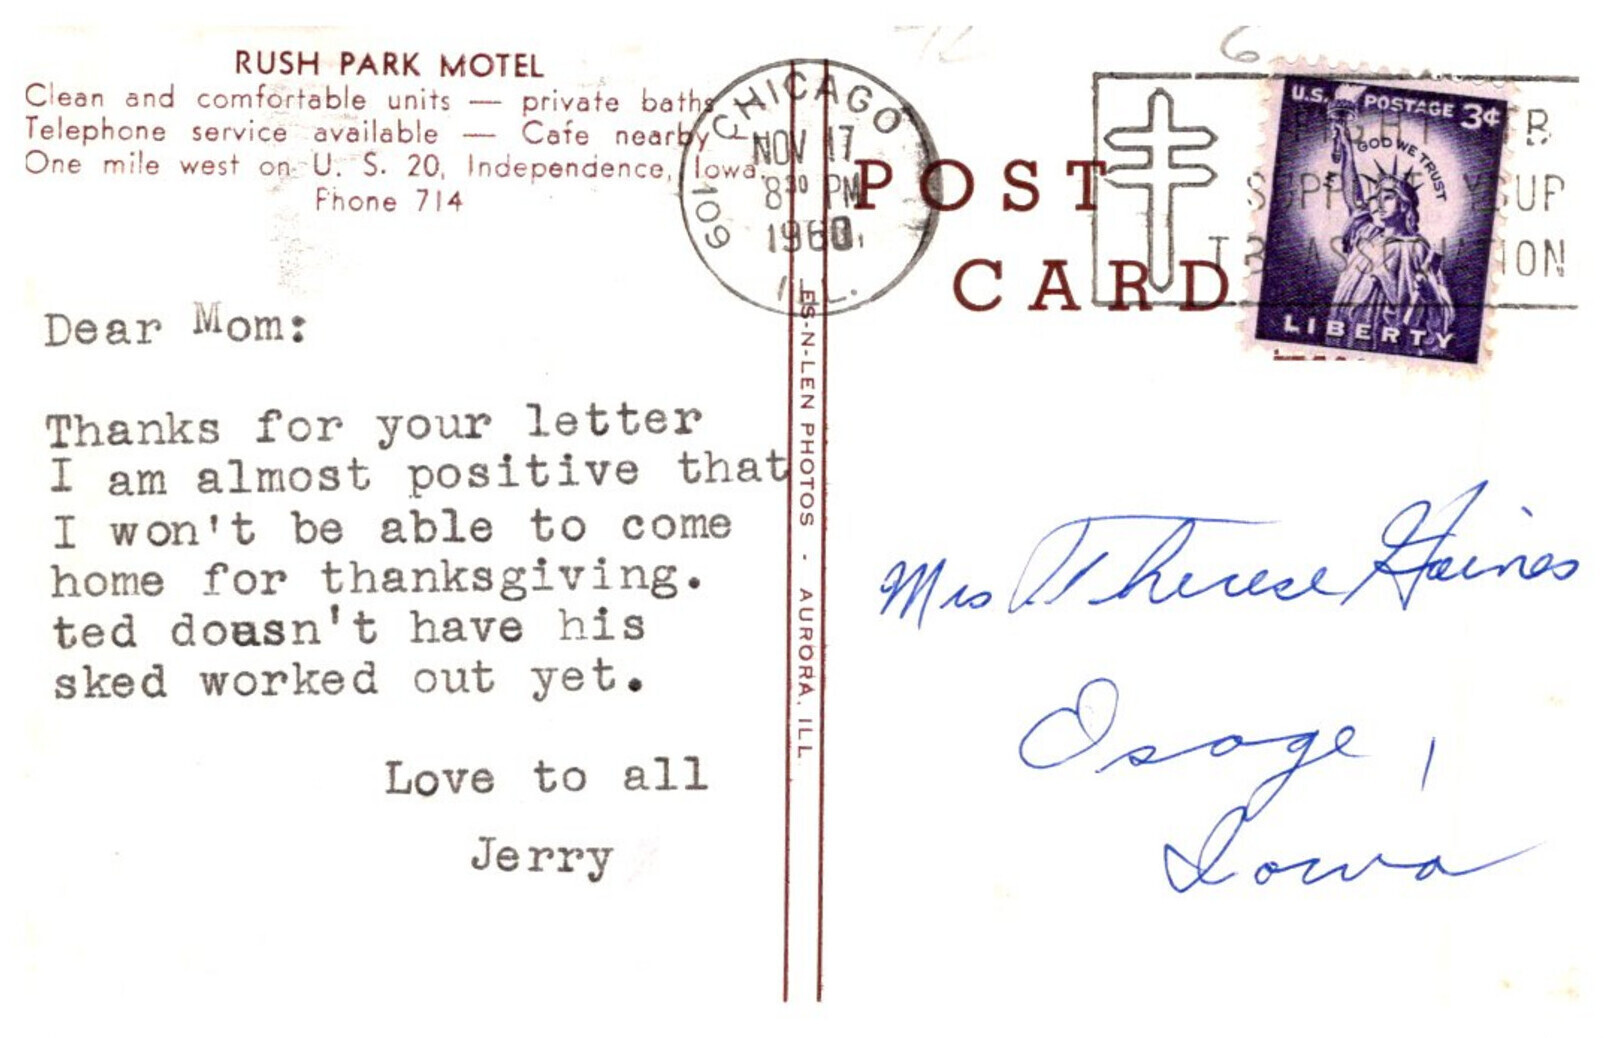 RUSH PARK MOTEL
Clean and comfortable units — private baths
Telephone service available — Cafe nearby
One mile west on U. S. 20, Independence, Iowa.
Phone 714
Dear Mom:
Thanks for your letter
I am almost positive that
I won't be able to come
home for thanksgiving.
ted doasn't have his
sked worked out yet.
Love to all
Jerry
-N-LEN PHOTOS - AURORA, ILL
CHICAGO
NOV 17
8 30 PM
1960
109
ILL.
POST
CARD
6
FIGHT TB
SUPPORT YOUR
TB ASSOCIATION
U.S. POSTAGE 3¢
IN GOD WE TRUST
LIBERTY
Mrs Therese Haines
Osage,
Iowa